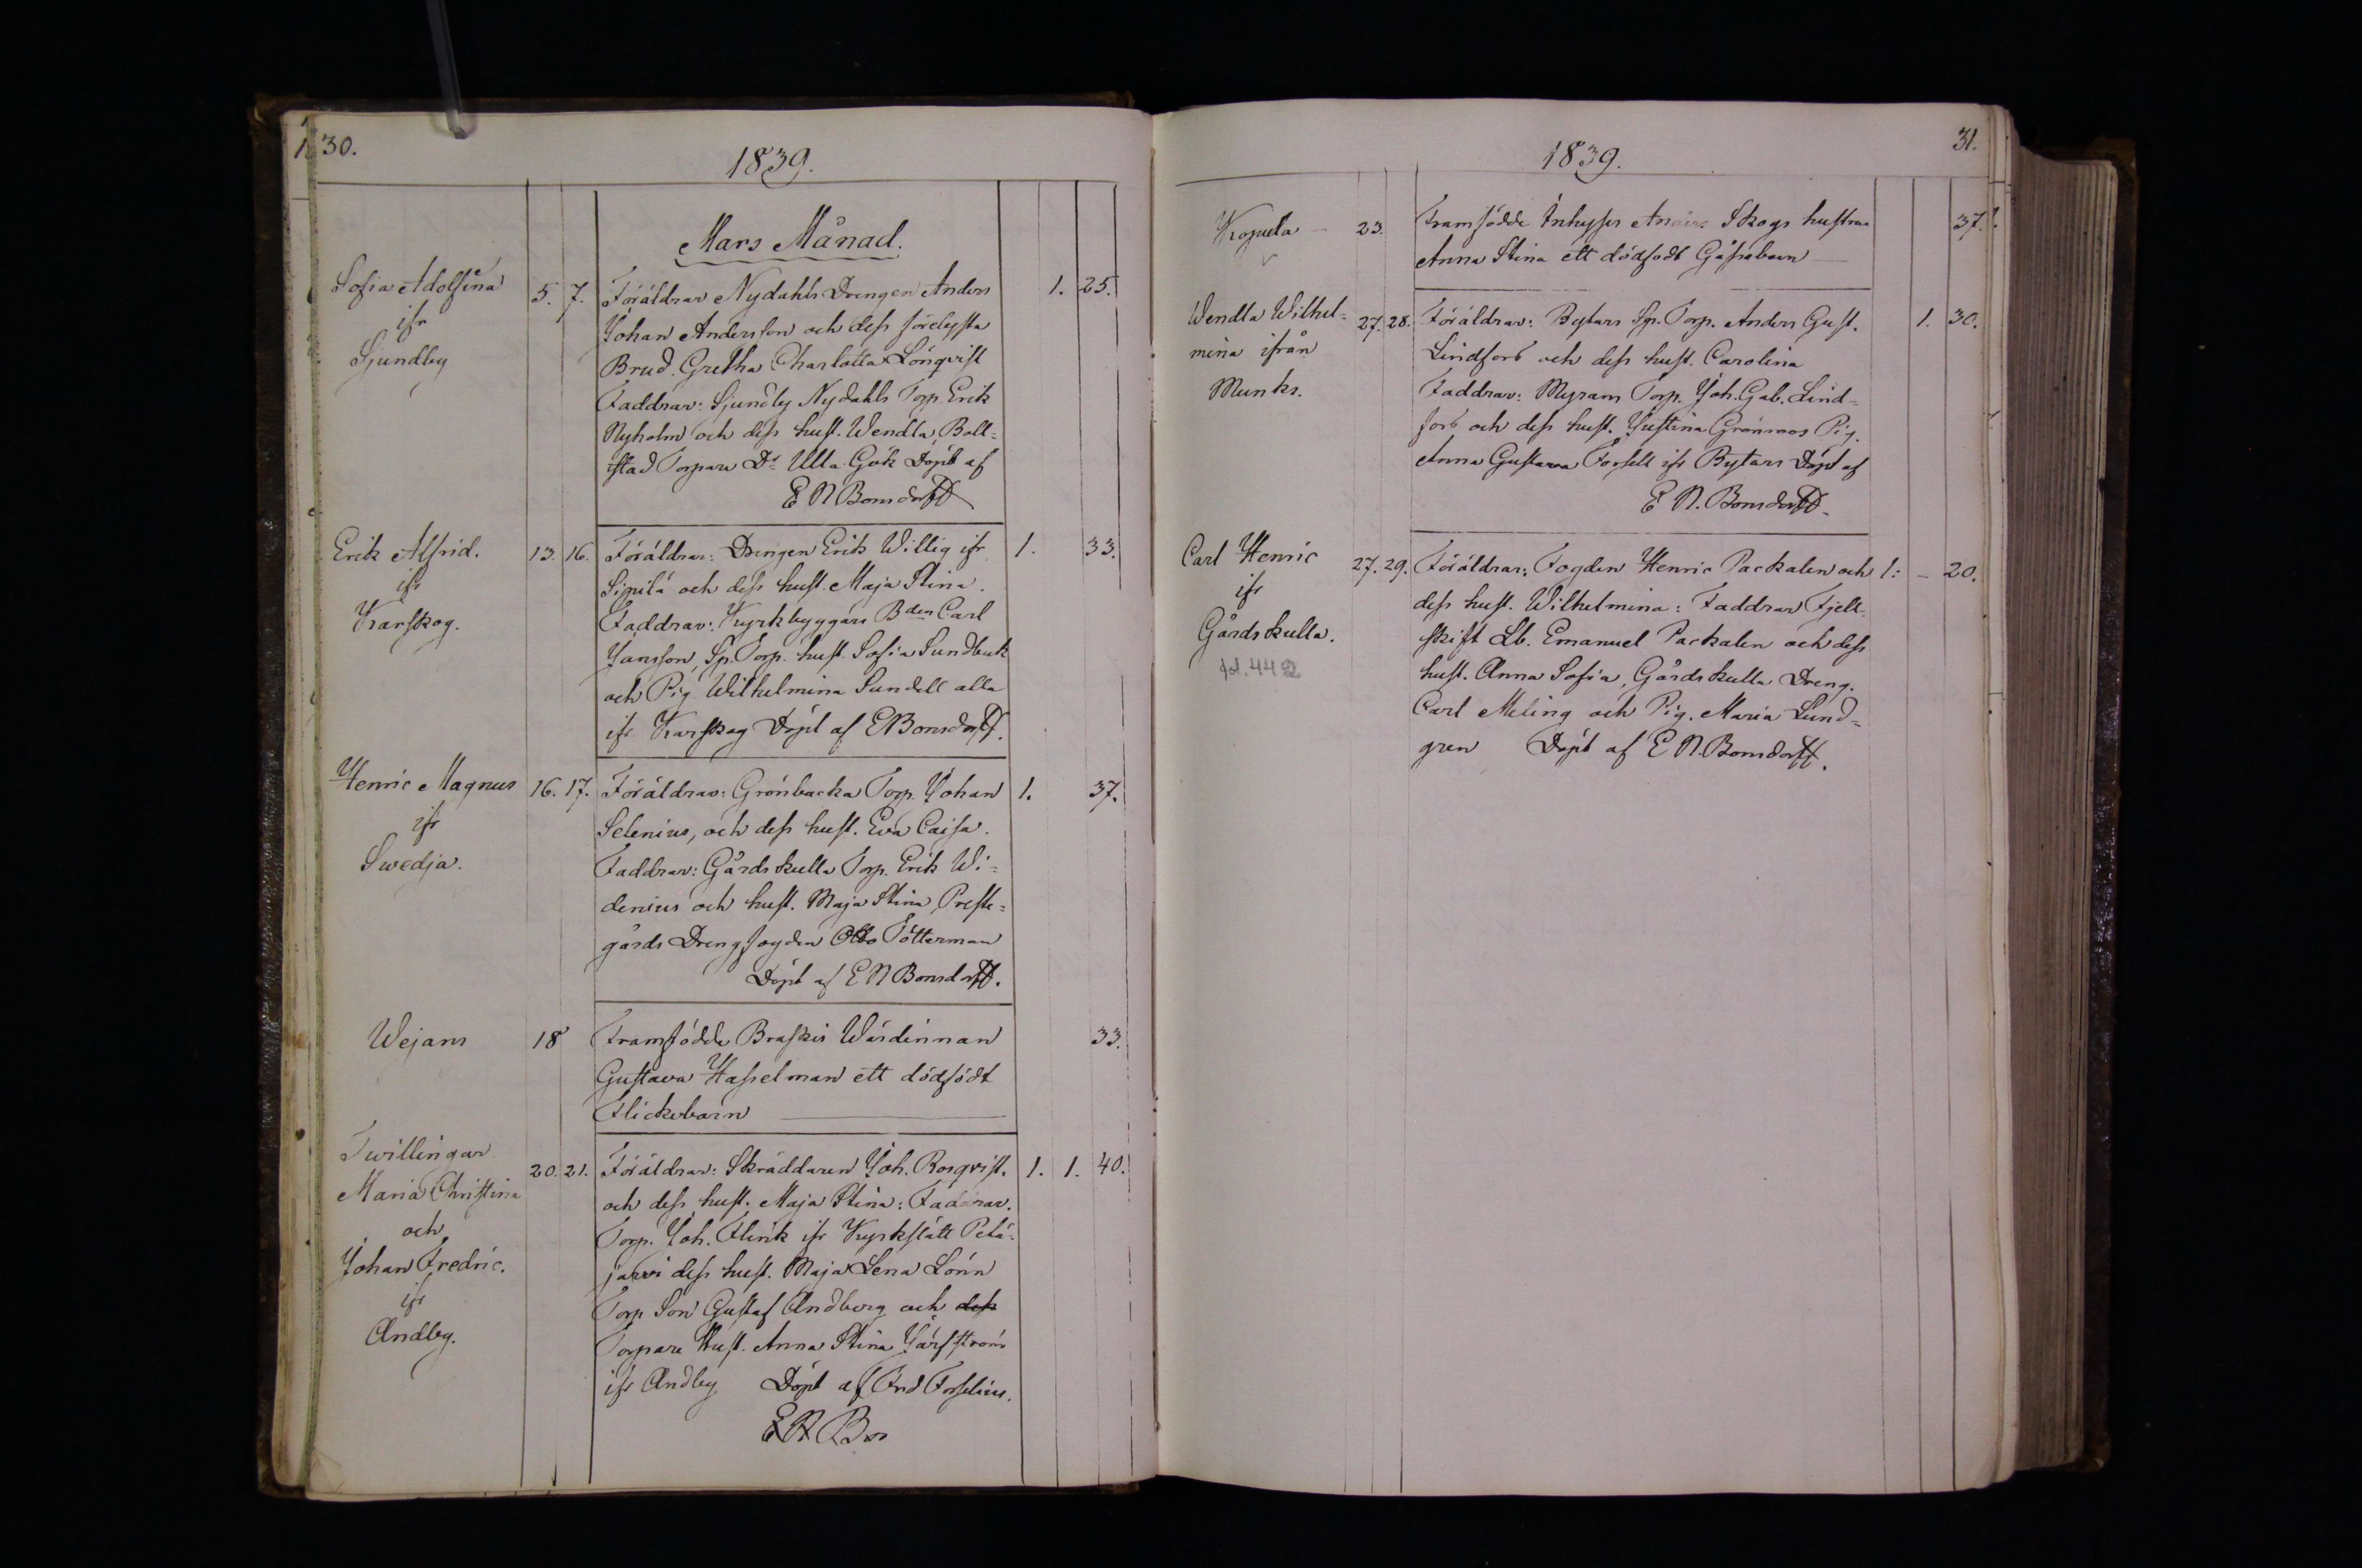 30.
1839.
Mars Månad.
Sofia Adolfina
ifr
Sjundby
5. 7.
Föräldrar Nydahls Drengen Anders
Johan Andersson och dess förelysta
Brud. Gretha Charlotta Lönqvist
Faddrar: Sjundby Nydahls Torp. Erik
Nyholm och dess hust. Wendla, Boll-
stad Torpare Dr Ulla Gök Döpt af
E N Bonsdorff
1. 25.
Erik Alfrid.
ifr
Karskog.
13. 16.
Föräldrar: Drengen Erik Willig ifr
Sipilä och dess hust. Maja Stina.
Faddrar: Kyrkbyggars Bden Carl
Jansson, Sp. Torp. hust. Sofia Sundbeck
och Pig. Wilhelmina Sundell alla
ifr Karskog Döpt af E Bonsdorff.
1. 33.
Henric Magnus
ifr
Swedja.
16. 17.
Föräldrar: Grönbacka Torp. Johan
Selenius, och dess hust. Eva Caisa.
Faddrar: Gårdskulla Torp. Erik Wi-
denius och hust. Maja Stina, Preste-
gårds Drengfogden Otto Tötterman
Döpt af E N Bonsdorff.
1. 37.
Wejans
18
Framfödde Braskis Wärdinnan
Gustava Hasselman ett dödfödt
Flickebarn
33.
Twillingar
Maria Christina
och
Johan Fredric.
ifr
Andby.
20. 21.
Föräldrar: Skräddaren Joh. Rosqvist.
och dess hust. Maja Stina: Faddrar.
Torp. Joh. Flink ifr Kyrkslätt Petä-
jarvi dess hust. Maja Lena Lönn
Torp Son Gustaf Andberg och dess
Torpare Hust. Anna Stina Järfström
ifr Andby Döpt af Frd Forselius.
E N Bo
1. 1. 40.
31.
1839.
Kopula
23.
Framfödde Inhyses Anders Skogs hustru
Anna Stina ett dödfödt Gåssebarn
37.
Wendla Wilhel-
mina ifrån
Munks.
27. 28.
Föräldrar: Bytars Sp. Torp. Anders Gust.
Lindfors och dess hust. Carolina
Faddrar: Myrans Torp. Joh. Gab. Lind-
fors och dess hust. Justina Grönroos Pig.
Anna Gustava Forsell ifr Bytars Döpt af
E N. Bonsdorff.
1. 30.
Carl Henric
ifr
Gårdskulla.
fol. 442
27. 29.
Föräldrar: Fogden Henric Packalen och
dess hust. Wilhelmina: Faddrar Fjell-
skift Lb. Emanuel Packalen och dess
hust. Anna Sofia, Gårdskulla Dreng.
Carl Meling och Pig. Maria Lund-
gren Döpt af E N. Bonsdorff.
1: – 20.